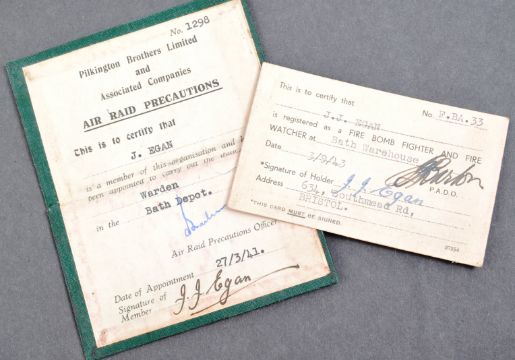 No. 1298
Pilkington Brothers Limited
and
Associated Companies
AIR RAID PRECAUTIONS
This is to certify that
J. EGAN
is a member of this organisation and
been appointed to carry out the
Warden
in the Bath Depot.
Air Raid Precautions Officer
Date of Appointment 27/3/41.
Signature of Member J. J. Egan
This is to certify that No. F.BA.33
J.J. EGAN
is registered as a FIRE BOMB FIGHTER AND FIRE
WATCHER at Bath Warehouse
Date
P.A.D.O.
*Signature of Holder J. J. Egan
Address 634, Southmead Rd,
BRISTOL.
*THIS CARD MUST BE SIGNED.